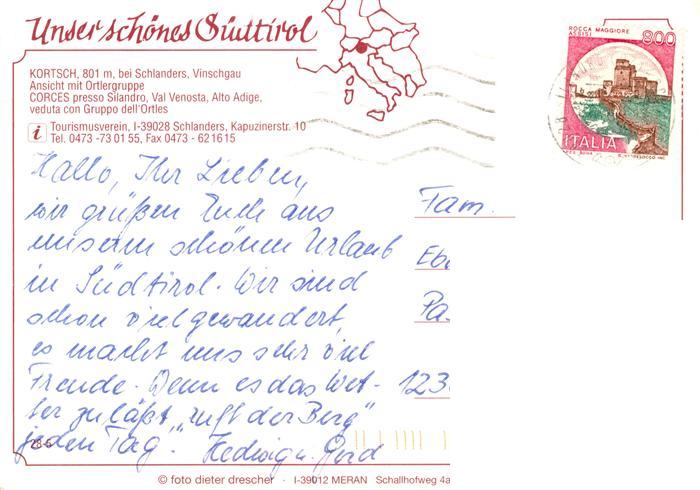 Unser schönes Südtirol
KORTSCH, 801 m, bei Schlanders, Vinschgau
Ansicht mit Ortlergruppe
CORCES presso Silandro, Val Venosta, Alto Adige,
veduta con Gruppo dell'Ortles
i Tourismusverein, I-39028 Schlanders, Kapuzinerstr. 10
Tel. 0473 -73 01 55, Fax 0473 - 62 16 15
ROCCA MAGGIORE
ASSISI
800
ITALIA
Hallo, Ihr Lieben,
wir grüßen Euch aus
unserm schönen Urlaub
in Südtirol. Wir sind
schon viel gewandert,
es macht uns sehr viel
Freude. Wenn es das Wet-
ter zuläßt „ruft der Berg"
jeden Tag. Hedwig u. Gerd
Fam.
Eb
Pa
123
28-5
© foto dieter drescher · I-39012 MERAN Schallhofweg 4a